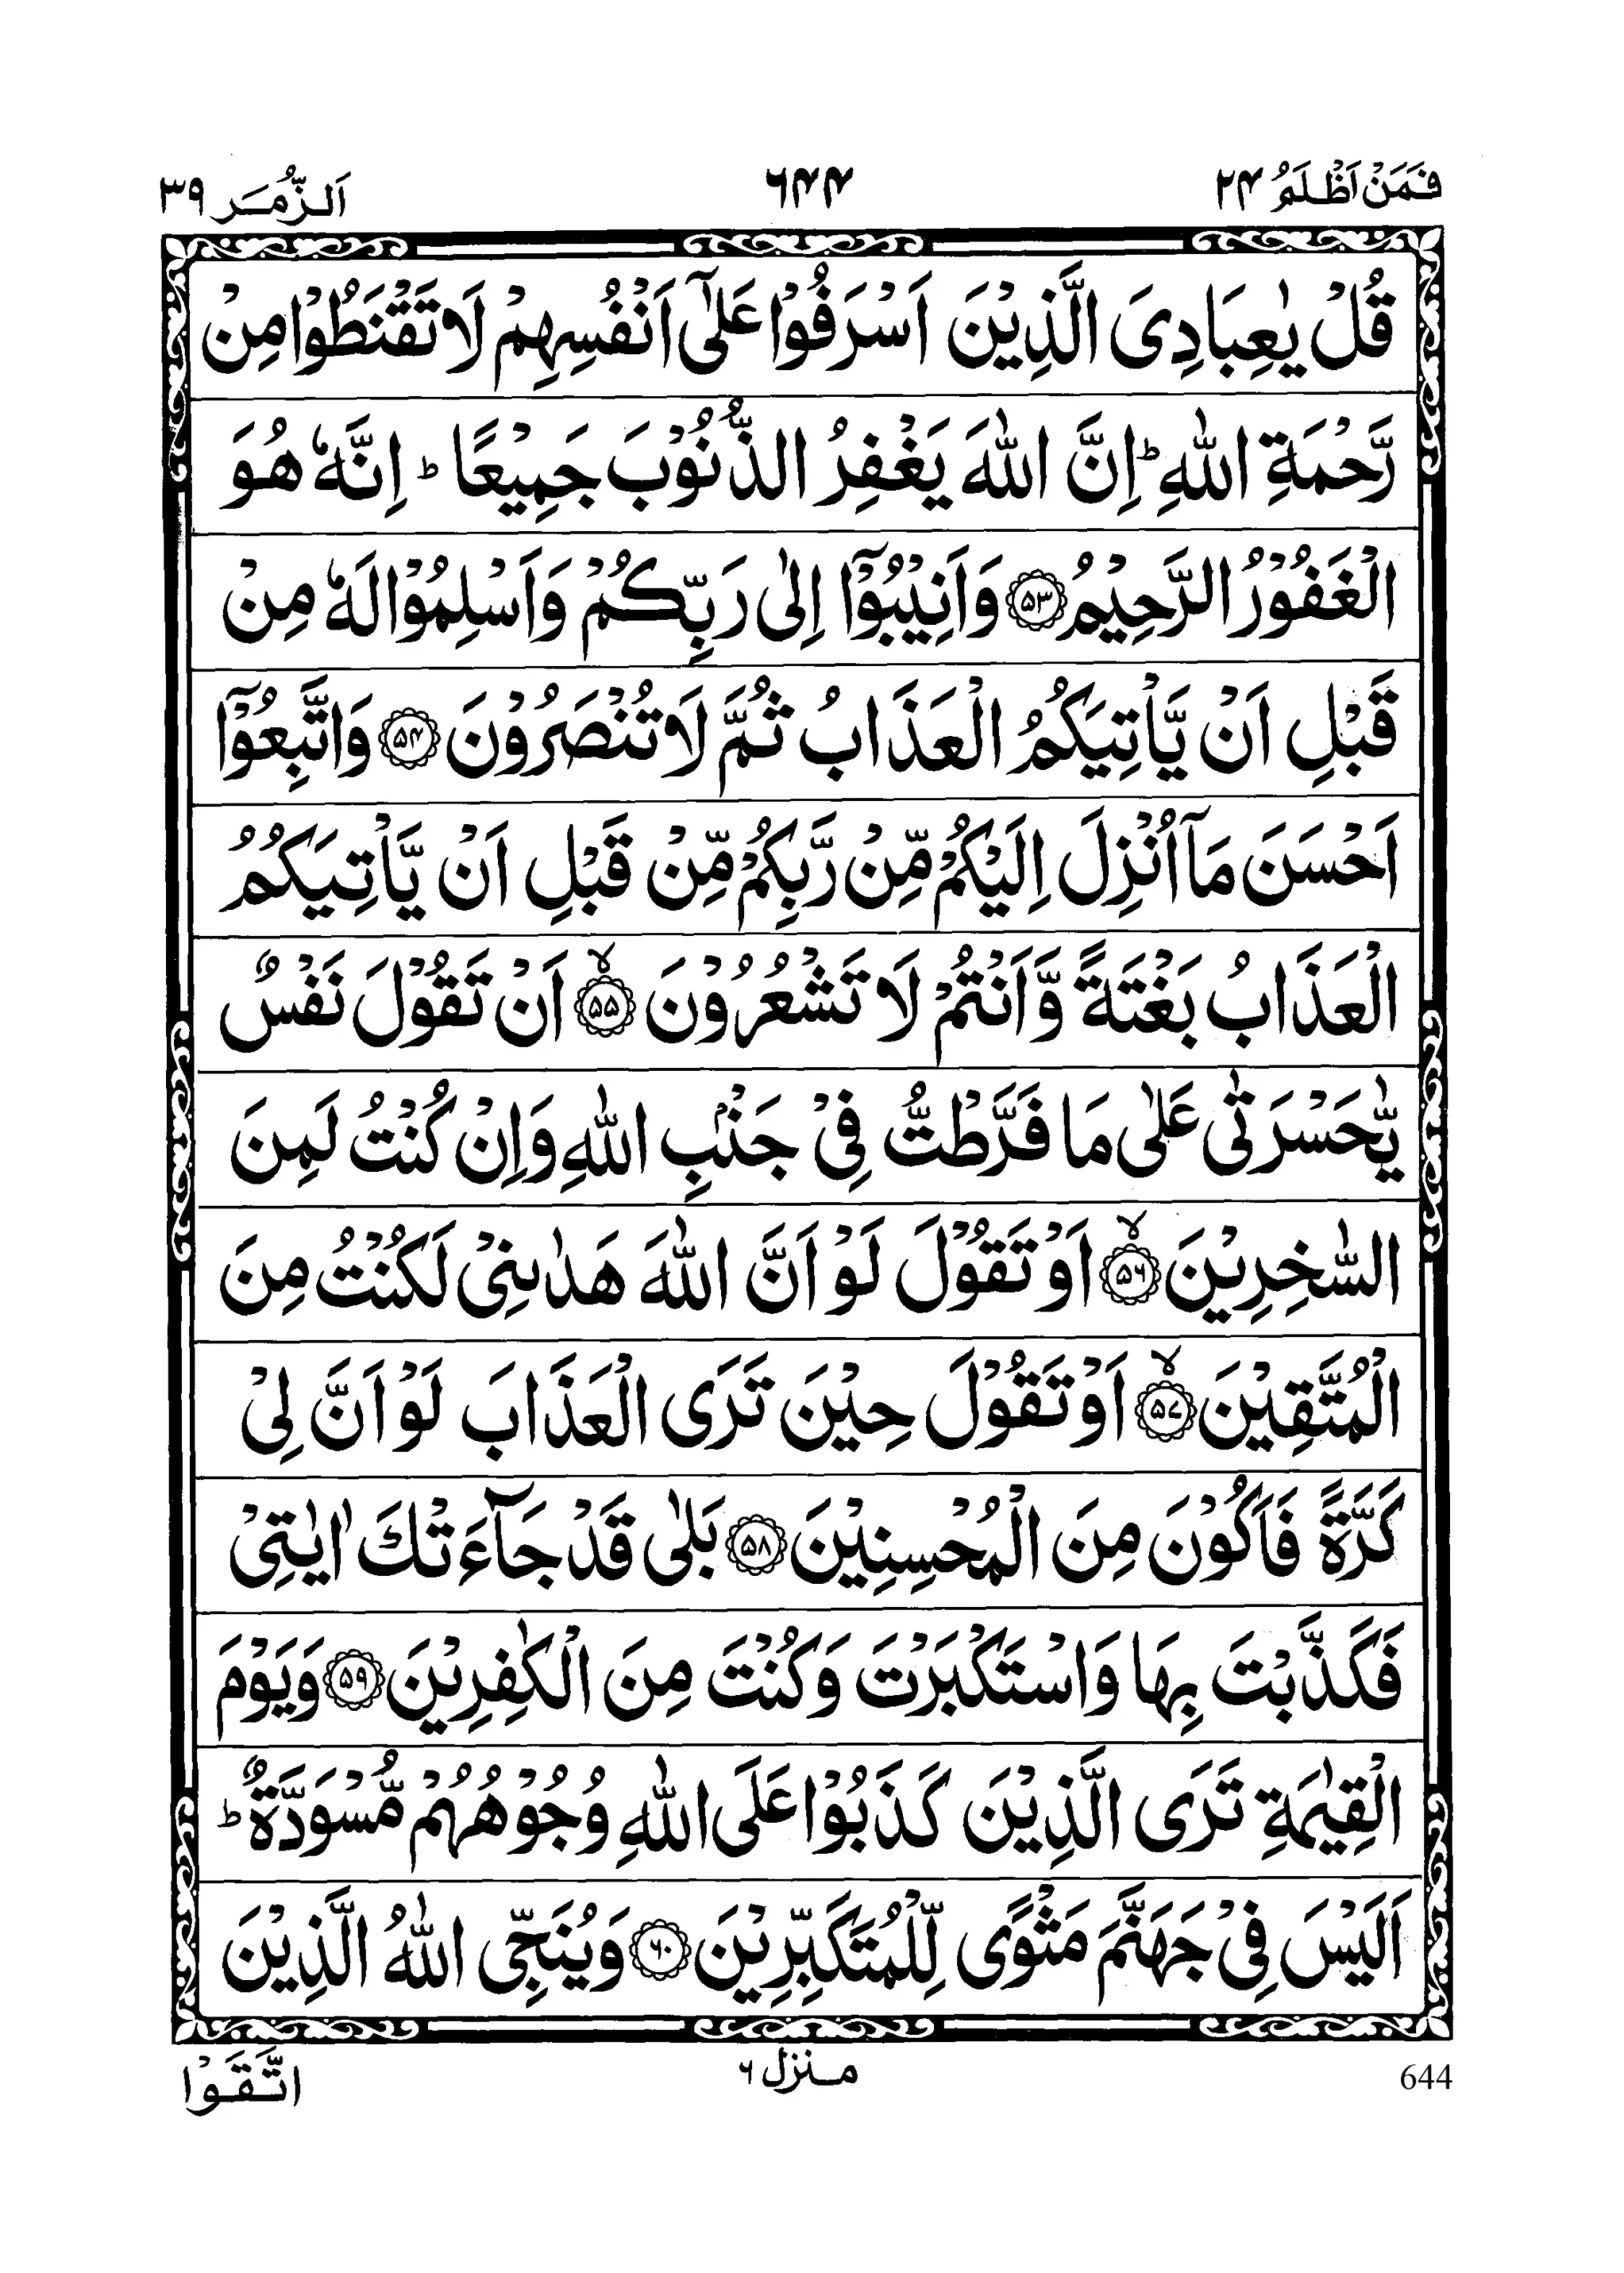 فَمَنْ اَظْلَمُ ۲۴ ۶۴۴ اَلزُّمَر ۳۹
قُلْ يٰعِبَادِىَ الَّذِيْنَ اَسْرَفُوْا عَلٰٓى اَنْفُسِهِمْ لَا تَقْنَطُوْا مِنْ
رَّحْمَةِ اللّٰهِ ؕ اِنَّ اللّٰهَ يَغْفِرُ الذُّنُوْبَ جَمِيْعًا ؕ اِنَّهٗ هُوَ
الْغَفُوْرُ الرَّحِيْمُ ۵۳ وَاَنِيْبُوْٓا اِلٰى رَبِّكُمْ وَاَسْلِمُوْا لَهٗ مِنْ
قَبْلِ اَنْ يَّاْتِيَكُمُ الْعَذَابُ ثُمَّ لَا تُنْصَرُوْنَ ۵۴ وَاتَّبِعُوْٓا
اَحْسَنَ مَآ اُنْزِلَ اِلَيْكُمْ مِّنْ رَّبِّكُمْ مِّنْ قَبْلِ اَنْ يَّاْتِيَكُمُ
الْعَذَابُ بَغْتَةً وَّاَنْتُمْ لَا تَشْعُرُوْنَ ۙ ۵۵ اَنْ تَقُوْلَ نَفْسٌ
يّٰحَسْرَتٰى عَلٰى مَا فَرَّطْتُّ فِىْ جَنْۢبِ اللّٰهِ وَاِنْ كُنْتُ لَمِنَ
السّٰخِرِيْنَ ۙ ۵۶ اَوْ تَقُوْلَ لَوْ اَنَّ اللّٰهَ هَدٰىنِىْ لَكُنْتُ مِنَ
الْمُتَّقِيْنَ ۙ ۵۷ اَوْ تَقُوْلَ حِيْنَ تَرَى الْعَذَابَ لَوْ اَنَّ لِىْ
كَرَّةً فَاَكُوْنَ مِنَ الْمُحْسِنِيْنَ ۵۸ بَلٰى قَدْ جَآءَتْكَ اٰيٰتِىْ
فَكَذَّبْتَ بِهَا وَاسْتَكْبَرْتَ وَكُنْتَ مِنَ الْكٰفِرِيْنَ ۵۹ وَيَوْمَ
الْقِيٰمَةِ تَرَى الَّذِيْنَ كَذَبُوْا عَلَى اللّٰهِ وُجُوْهُهُمْ مُّسْوَدَّةٌ ؕ
اَلَيْسَ فِىْ جَهَنَّمَ مَثْوًى لِّلْمُتَكَبِّرِيْنَ ۶۰ وَيُنَجِّى اللّٰهُ الَّذِيْنَ
644 منزل ۶ اتَّقَوْا